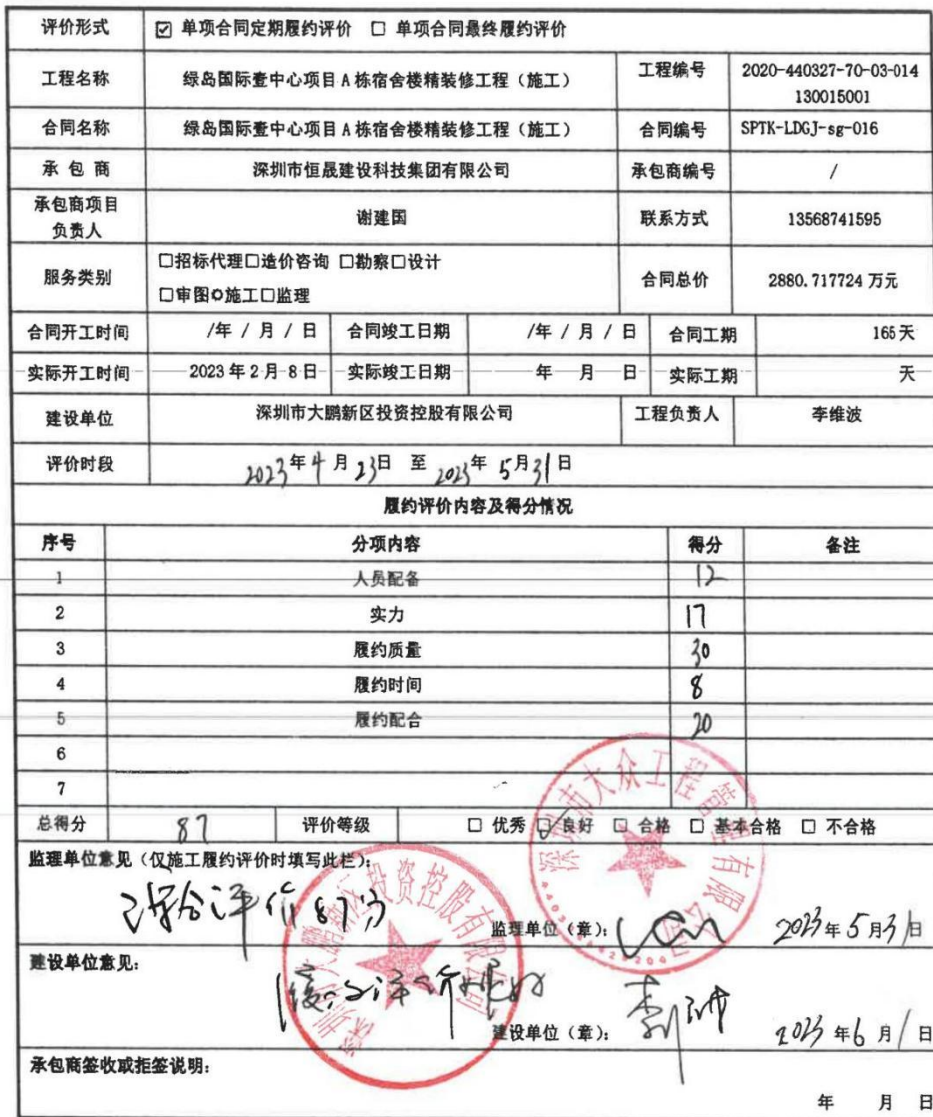 评价形式 ☑ 单项合同定期履约评价 □ 单项合同最终履约评价
工程名称 绿岛国际壹中心项目A栋宿舍楼精装修工程（施工） 工程编号 2020-440327-70-03-014
130015001
合同名称 绿岛国际壹中心项目A栋宿舍楼精装修工程（施工） 合同编号 SPTK-LDGJ-sg-016
承包商 深圳市恒晟建设科技集团有限公司 承包商编号 /
承包商项目
负责人 谢建国 联系方式 13568741595
服务类别 □招标代理□造价咨询 □勘察□设计
□审图✪施工□监理 合同总价 2880.717724 万元
合同开工时间 /年 / 月 / 日 合同竣工日期 /年 / 月 / 日 合同工期 165天
实际开工时间 2023年2月8日 实际竣工日期 年 月 日 实际工期 天
建设单位 深圳市大鹏新区投资控股有限公司 工程负责人 李维波
评价时段 2023年4月23日 至 2023年5月31日
履约评价内容及得分情况
序号 分项内容 得分 备注
1 人员配备 12
2 实力 17
3 履约质量 30
4 履约时间 8
5 履约配合 20
6
7
总得分 87 评价等级 □ 优秀 ☑ 良好 □ 合格 □ 基本合格 □ 不合格
监理单位意见（仅施工履约评价时填写此栏）：
综合评价87分
监理单位（章）： 2023年5月31日
建设单位意见：
履约评价良好
建设单位（章）： 2023年6月1日
承包商签收或拒签说明：
年 月 日